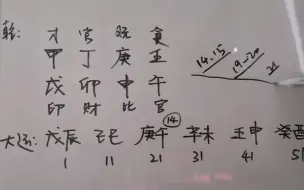 乾: 才 官 晥 食
甲 丁 庚 壬
戌 卯 申 午
印 财 比 官
14.15
19-20
21
14
大运: 戊辰 己巳 庚午 辛未 壬申 癸酉
1 11 21 31 41 51